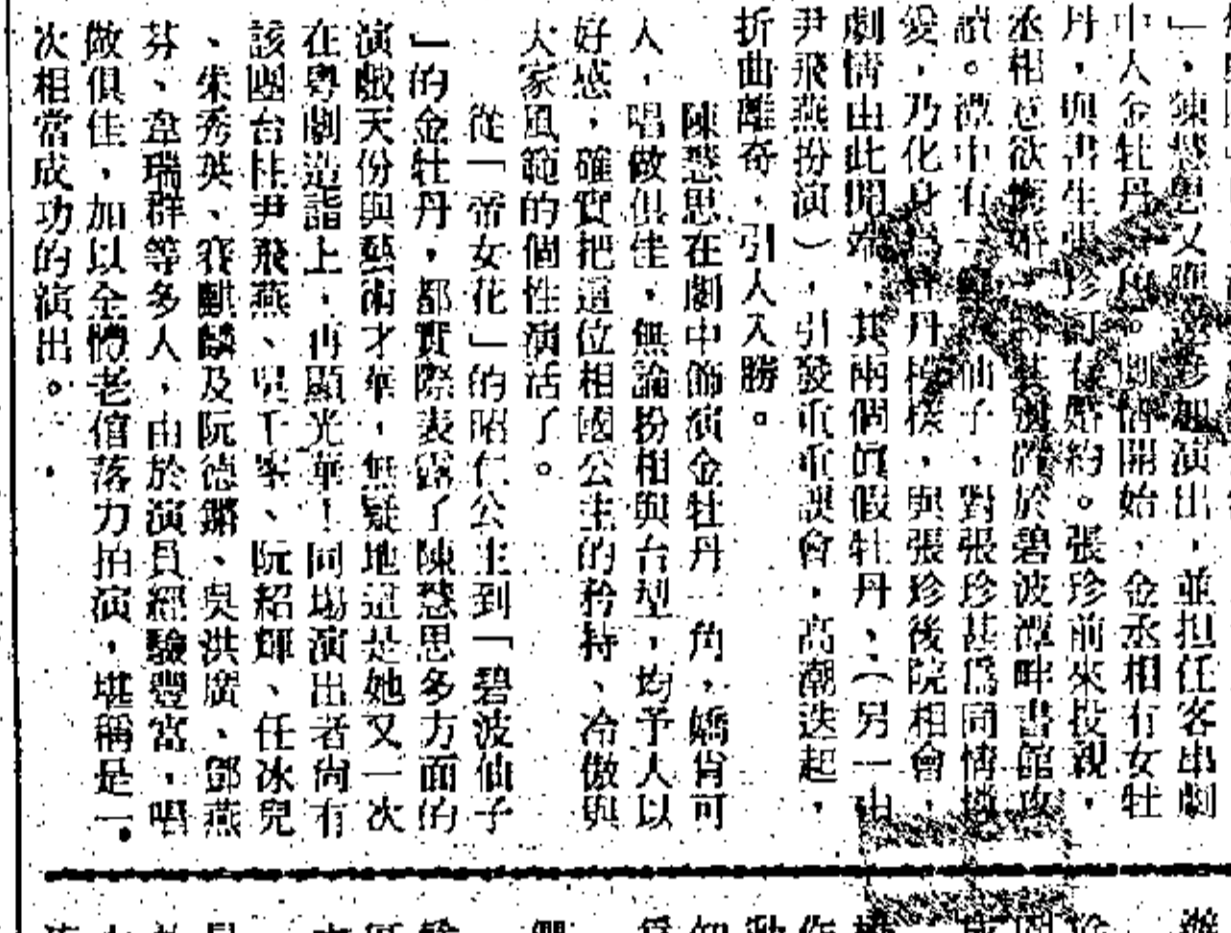 」,陳慧思又應邀參加演出,並担任客串劇
中人金牡丹一角。劇情開始,金丞相有女牡
丹,與書生張珍訂有婚約。張珍前來投親,
丞相意欲悔婚,將其安置於碧波潭畔書館攻
讀。潭中有一仙子,對張珍甚爲同情憐
愛,乃化身爲牡丹模樣,與張珍後院相會,
劇情由此開端,其兩個眞假牡丹、(另一由
尹飛燕扮演),引發重重誤會,高潮迭起,
折曲離奇,引人入勝。
陳慧思在劇中飾演金牡丹一角,嬌肖可
人,唱做俱佳,無論扮相與台型,均予人以
好感,確實把這位相國公主的矜持、冷傲與
大家風範的個性演活了。
從「帝女花」的昭仁公主到「碧波仙子
」的金牡丹,都實際表露了陳慧思多方面的
演戲天份與藝術才華,無疑地這是她又一次
在粤劇造詣上,再顯光華!同場演出者尚有
該團台柱尹飛燕、吳千峯、阮紹輝、任冰兒
、朱秀英、賽麒麟及阮德鏘、吳洪廣、鄧燕
芬、韋瑞群等多人,由於演員經驗豐富,唱
做俱佳,加以全體老倌落力拍演,堪稱是一
次相當成功的演出。